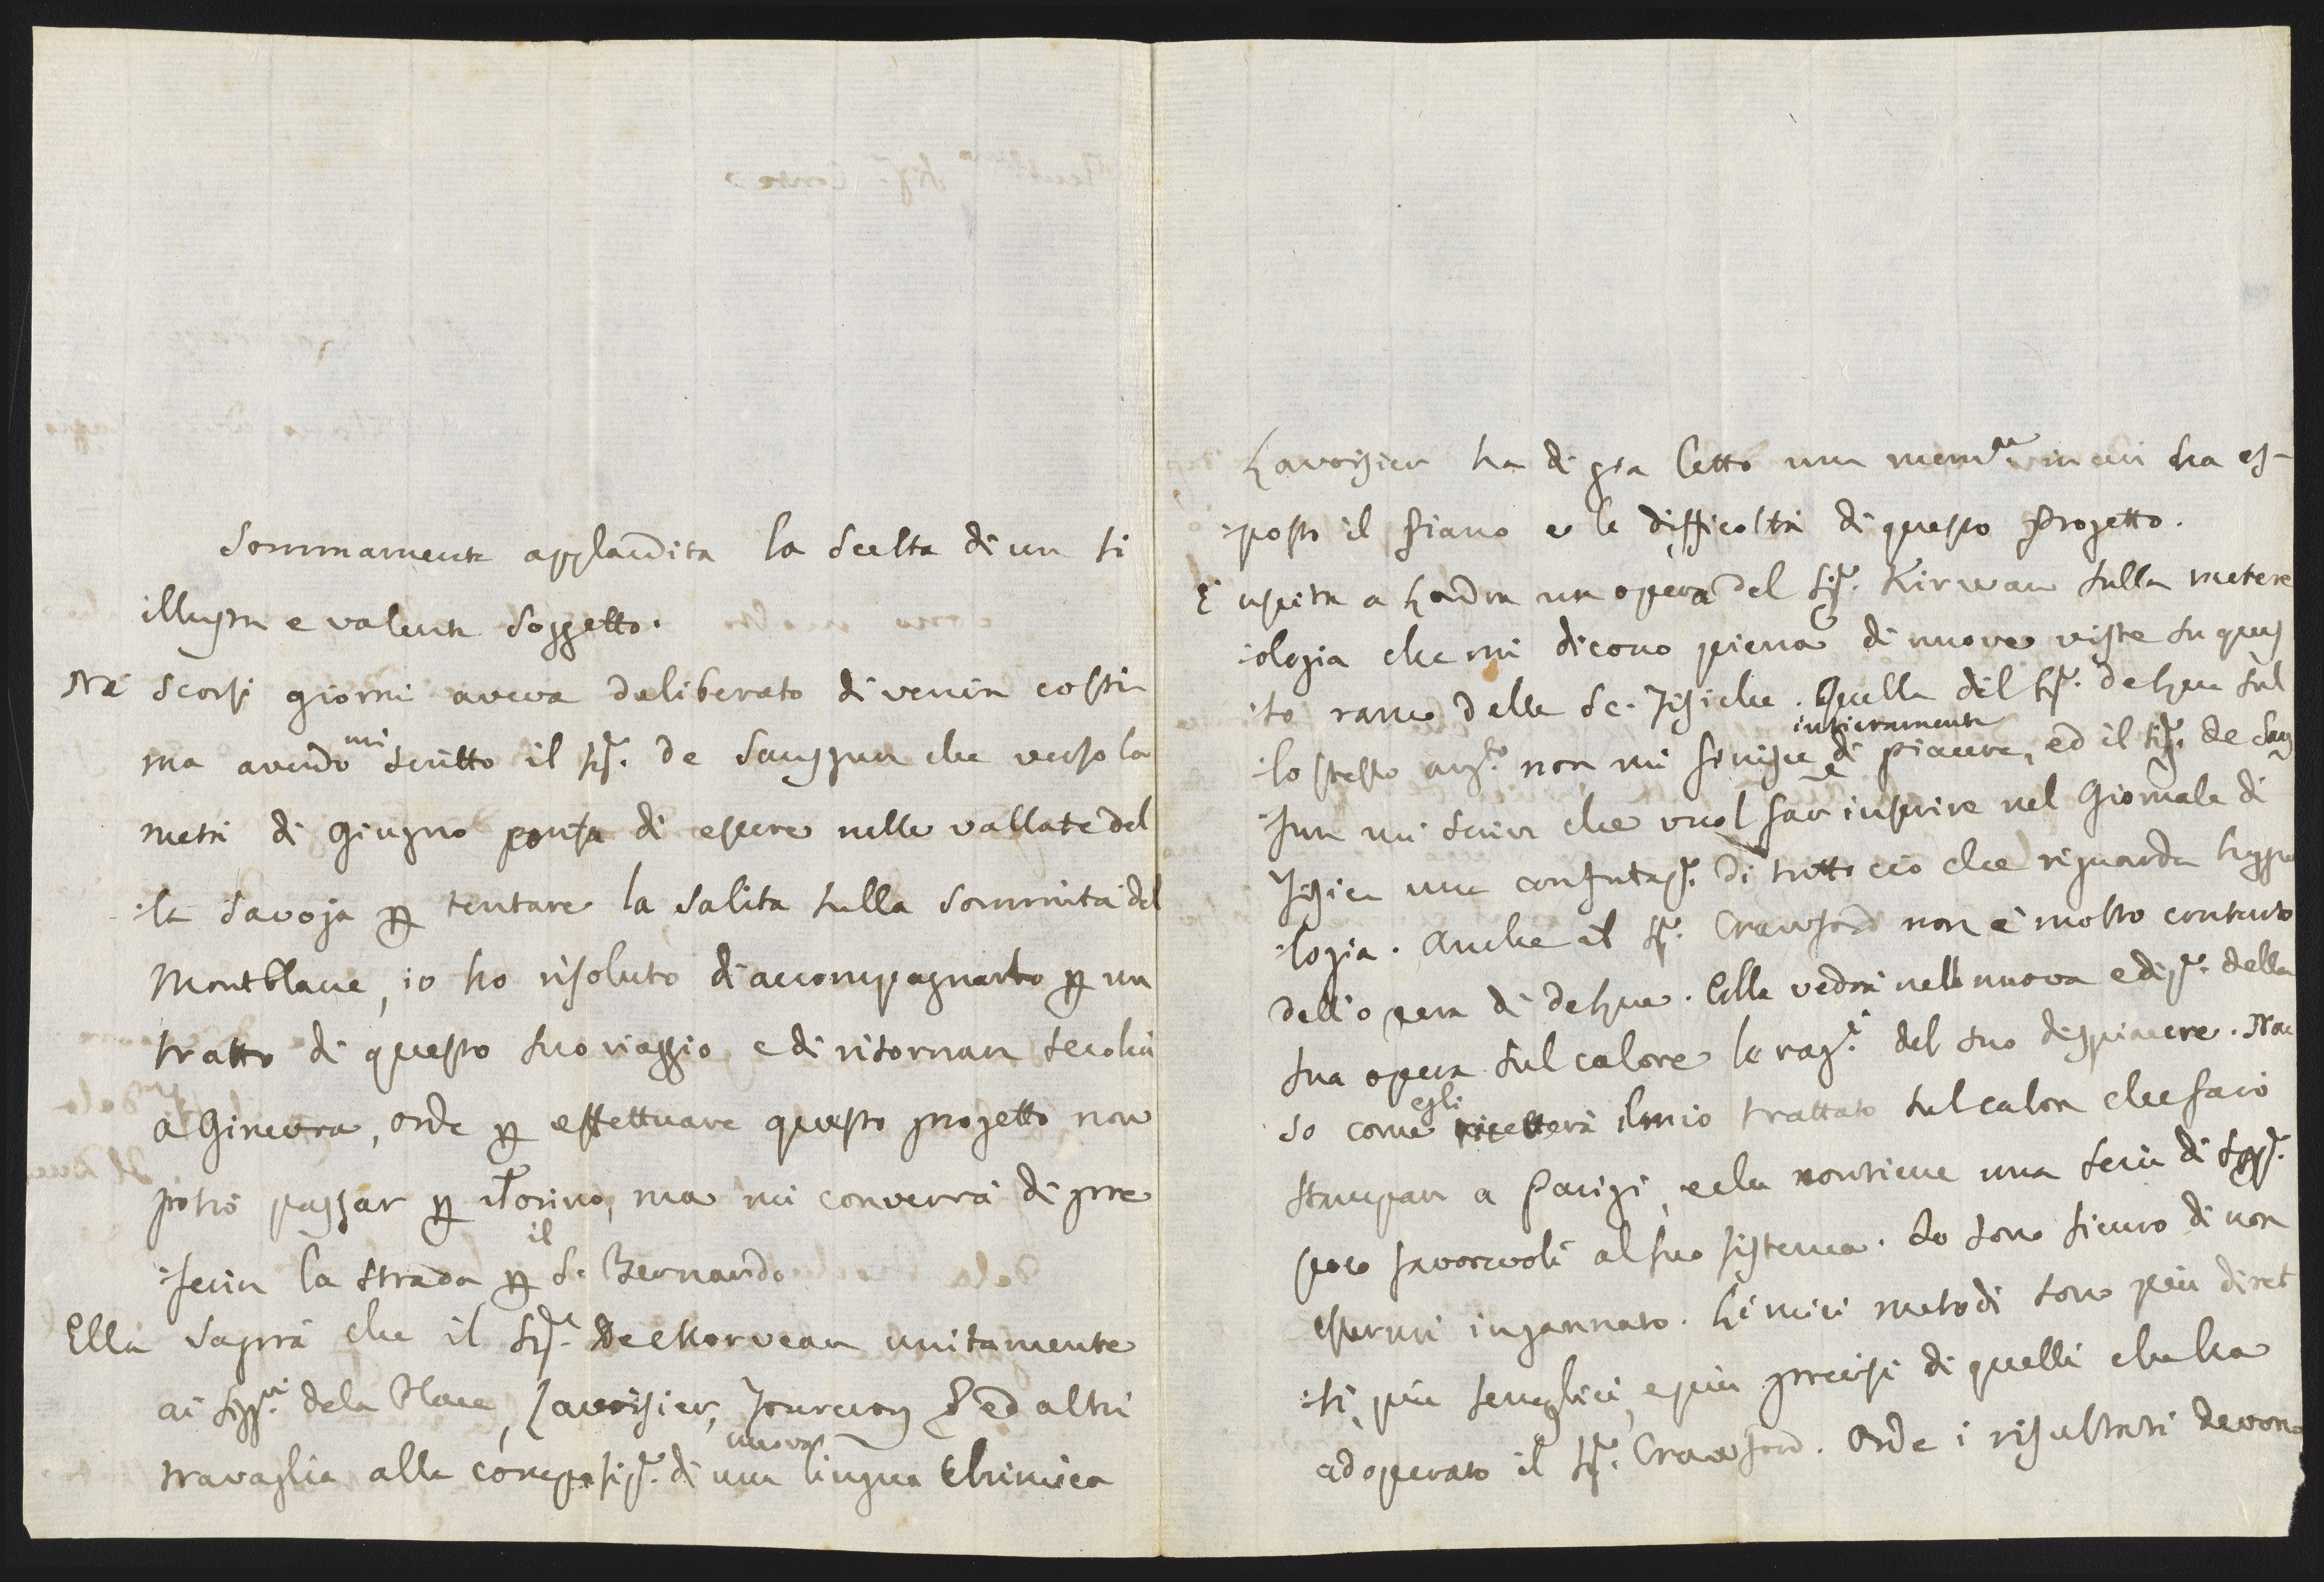 Sommamente applaudita la scelta di un si
illustre e valente soggetto.
Ne' scorsi giorni aveva deliberato di venire costi
ma avendo mi scritto il Sigr. de Saussure che verso la
metà di Giugno pensa di essere nelle vallate del
:la Savoja per tentare la salita sulla sommità del
Montblanc, io ho risoluto di accompagnarlo per un
tratto di questo suo viaggio, e di ritornare seco lui
a Ginevra, onde per effettuare questo progetto non
potrò passar per Torino, ma mi converrà di pre
:ferire la strada per il S. Bernardo
Ella saprà che il Sigr. De Morveau unitamente
ai Sigri. de la Place, Lavoisier, Fourcroy & ed altri
travaglia alla composiz.e di una nuova lingua Chimica
Lavoisier ha di gia letto una mem.a in cui ha es-
:posto il piano e le difficoltà di questo progetto.
È uscita a Londra un opera del Sigr. Kirwan sulla metere
:ologia che mi dicono piena di nuove viste su ques
:to ramo delle Sc. Fisiche. Quella del Sigr. deLuc sul
:lo stesso arg.to non mi finisce intieramente di piacere, ed il Sigr. de Saus
:sure mi scrive che vuol far inserire nel Giornale di
Fisica una confutaz.e di tutto ciò che riguarda l'Iggro
:logia. Anche il Sigr. Crawford non è molto contento
dell'opera di deLuc. Ella vedrà nella nuova ediz.e della
sua opera sul calore le rag.i del suo dispiacere. Non
so come egli riceverà il mio trattato sul calore che farò
stampare a Parigi, e che contiene una serie di spp.e
poco favorevoli al suo sistema. Io sono sicuro di non
essermi ingannato. Li miei metodi sono più diret
:ti, più semplici, e più precisi di quelli che ha
adoperato il Sigr. Crawford. Onde i risultati devono